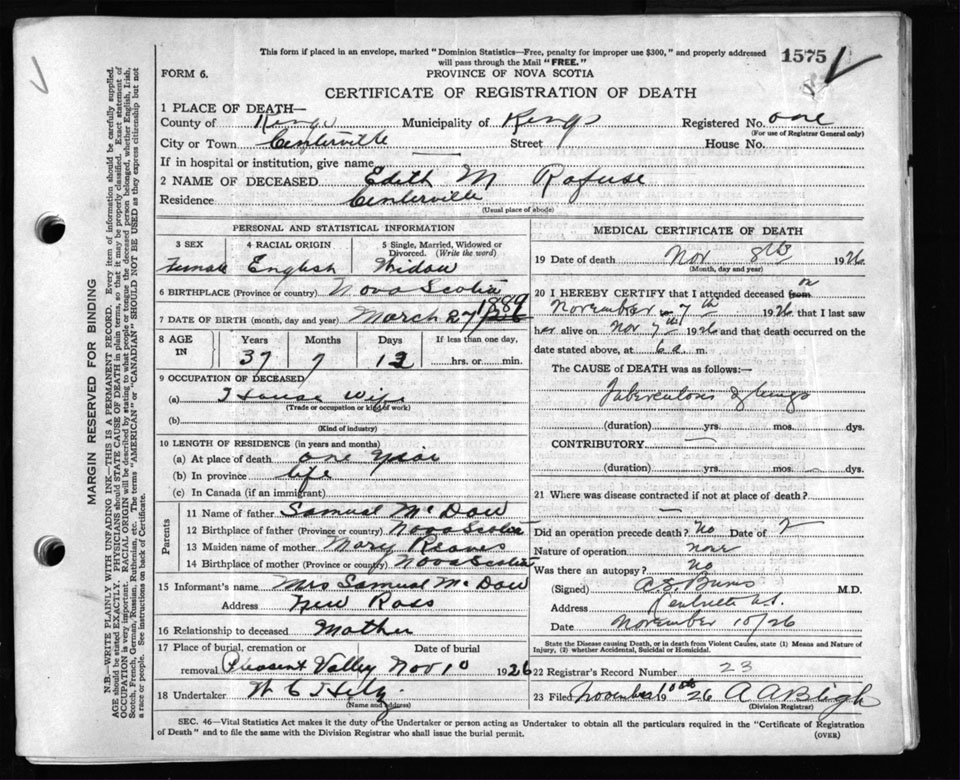 This form if placed in an envelope, marked "Dominion Statistics—Free, penalty for improper use $300," and properly addressed
will pass through the Mail "FREE."
1575
FORM 6.
PROVINCE OF NOVA SCOTIA
CERTIFICATE OF REGISTRATION OF DEATH
1 PLACE OF DEATH—
County of Kings Municipality of Kings Registered No. one
(For use of Registrar General only)
City or Town Centerville Street House No.
If in hospital or institution, give name
2 NAME OF DECEASED Edith M Rafuse
Residence Centerville
(Usual place of abode)
PERSONAL AND STATISTICAL INFORMATION
3 SEX 4 RACIAL ORIGIN 5 Single, Married, Widowed or
Divorced. (Write the word)
Female English Widow
6 BIRTHPLACE (Province or country) Nova Scotia
7 DATE OF BIRTH (month, day and year) March 27 1889
8 AGE IN Years Months Days If less than one day,
37 7 12 hrs. or min.
9 OCCUPATION OF DECEASED
(a) House Wife
(Trade or occupation or kind of work)
(b)
(Kind of industry)
10 LENGTH OF RESIDENCE (in years and months)
(a) At place of death one year
(b) In province life
(c) In Canada (if an immigrant)
Parents
11 Name of father Samuel McDow
12 Birthplace of father (Province or country) Nova Scotia
13 Maiden name of mother Mary Reaves
14 Birthplace of mother (Province or country) Nova Scotia
15 Informant's name Mrs Samuel McDow
Address New Ross
16 Relationship to deceased Mother
17 Place of burial, cremation or Date of burial
removal Pleasent Valley Nov 10 1926
18 Undertaker W C
(Name and address)
MEDICAL CERTIFICATE OF DEATH
19 Date of death Nov 8th 1926
(Month, day and year)
20 I HEREBY CERTIFY that I attended deceased from on
November 7th 1926 that I last saw
her alive on Nov 7th 1926 and that death occurred on the
date stated above, at 6 a. m.
The CAUSE of DEATH was as follows:—
Tuberculosis of lungs
(duration) yrs. mos. dys.
CONTRIBUTORY
(duration) yrs. mos. dys.
21 Where was disease contracted if not at place of death?
Did an operation precede death? No Date of
Nature of operation none
Was there an autopsy? no
(Signed) A.E. Burns M.D.
Address Kentville N.S.
Date November 10/26
State the Disease causing Death, or in death from Violent Causes, state (1) Means and Nature of
Injury, (2) whether Accidental, Suicidal or Homicidal.
22 Registrar's Record Number 23
23 Filed November 10th 1926 A A Bligh
(Division Registrar)
SEC. 46—Vital Statistics Act makes it the duty of the Undertaker or person acting as Undertaker to obtain all the particulars required in the "Certificate of Registration
of Death" and to file the same with the Division Registrar who shall issue the burial permit.
(OVER)
MARGIN RESERVED FOR BINDING
N.B.—WRITE PLAINLY WITH UNFADING INK—THIS IS A PERMANENT RECORD. Every item of information should be carefully supplied.
AGE should be stated EXACTLY. PHYSICIANS should STATE CAUSE OF DEATH in plain terms, so that it may be properly classified. Exact statement of
OCCUPATION is very important. RACIAL ORIGIN will be described by stating to what people or tongue the deceased person belonged, whether English, Irish,
Scotch, French, German, Russian, Ruthenian, etc. The terms "AMERICAN" or "CANADIAN" SHOULD NOT BE USED as they express citizenship but not
a race or people. See instructions on back of Certificate.